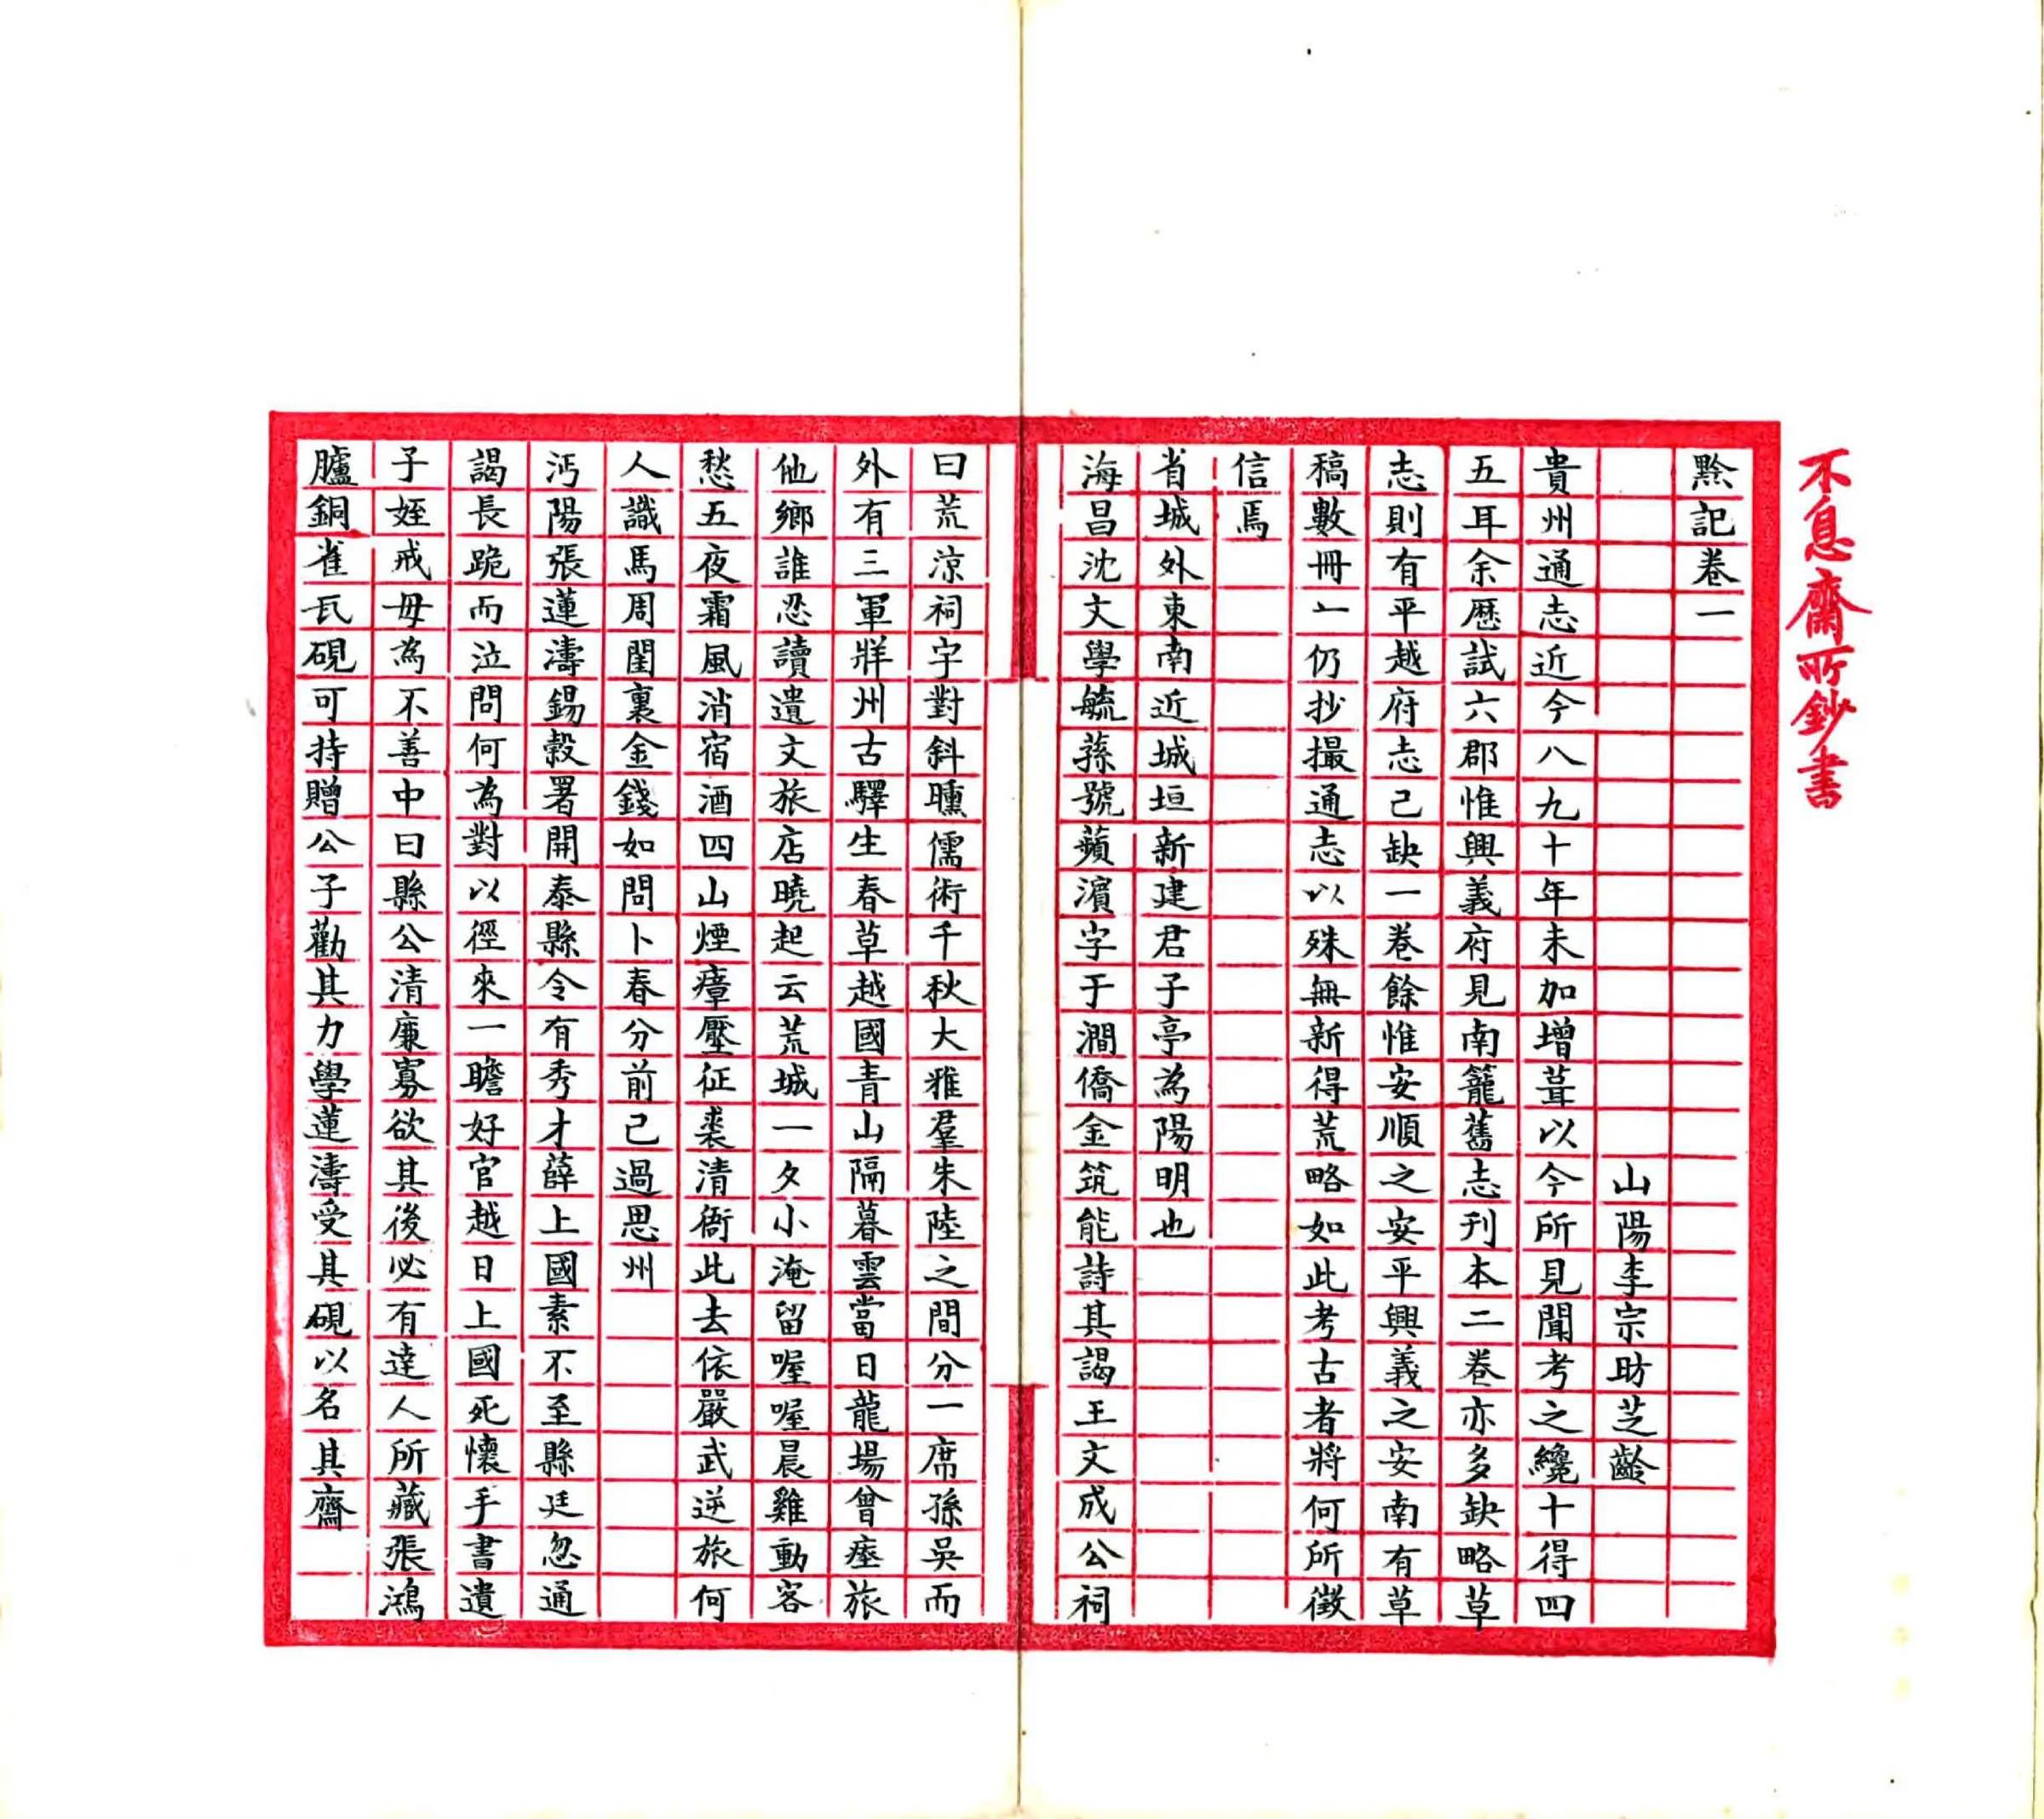 不息齋所鈔書
黔記卷一
山陽李宗昉芝齡
貴州通志近今八九十年未加增葺以今所見聞考之纔十得四
五耳余歷試六郡惟興義府見南籠舊志刊本二卷亦多缺略草
志則有平越府志己缺一卷餘惟安順之安平興義之安南有草
稿數冊一仍抄撮通志以殊無新得荒略如此考古者將何所徵
信焉
省城外東南近城垣新建君子亭為陽明也
海昌沈文學毓蓀號蘋濱字于澗僑金筑能詩其謁王文成公祠
曰荒涼祠宇對斜曛儒術千秋大雅羣朱陸之間分一席孫吳而
外有三軍牂州古驛生春草越國青山隔暮雲當日龍場曾瘞旅
他鄉誰忍讀遺文旅店曉起云荒城一夕小淹留喔喔晨雞動客
愁五夜霜風消宿酒四山煙瘴壓征裘清衙此去依嚴武逆旅何
人識馬周閨裏金錢如問卜春分前己過思州
沔陽張蓮濤錫穀署開泰縣令有秀才薛上國素不至縣廷忽通
謁長跪而泣問何為對以徑來一瞻好官越日上國死懷手書遺
子姪戒毋為不善中曰縣公清廉寡欲其後必有達人所藏張鴻
臚銅雀瓦硯可持贈公子勸其力學蓮濤受其硯以名其齋